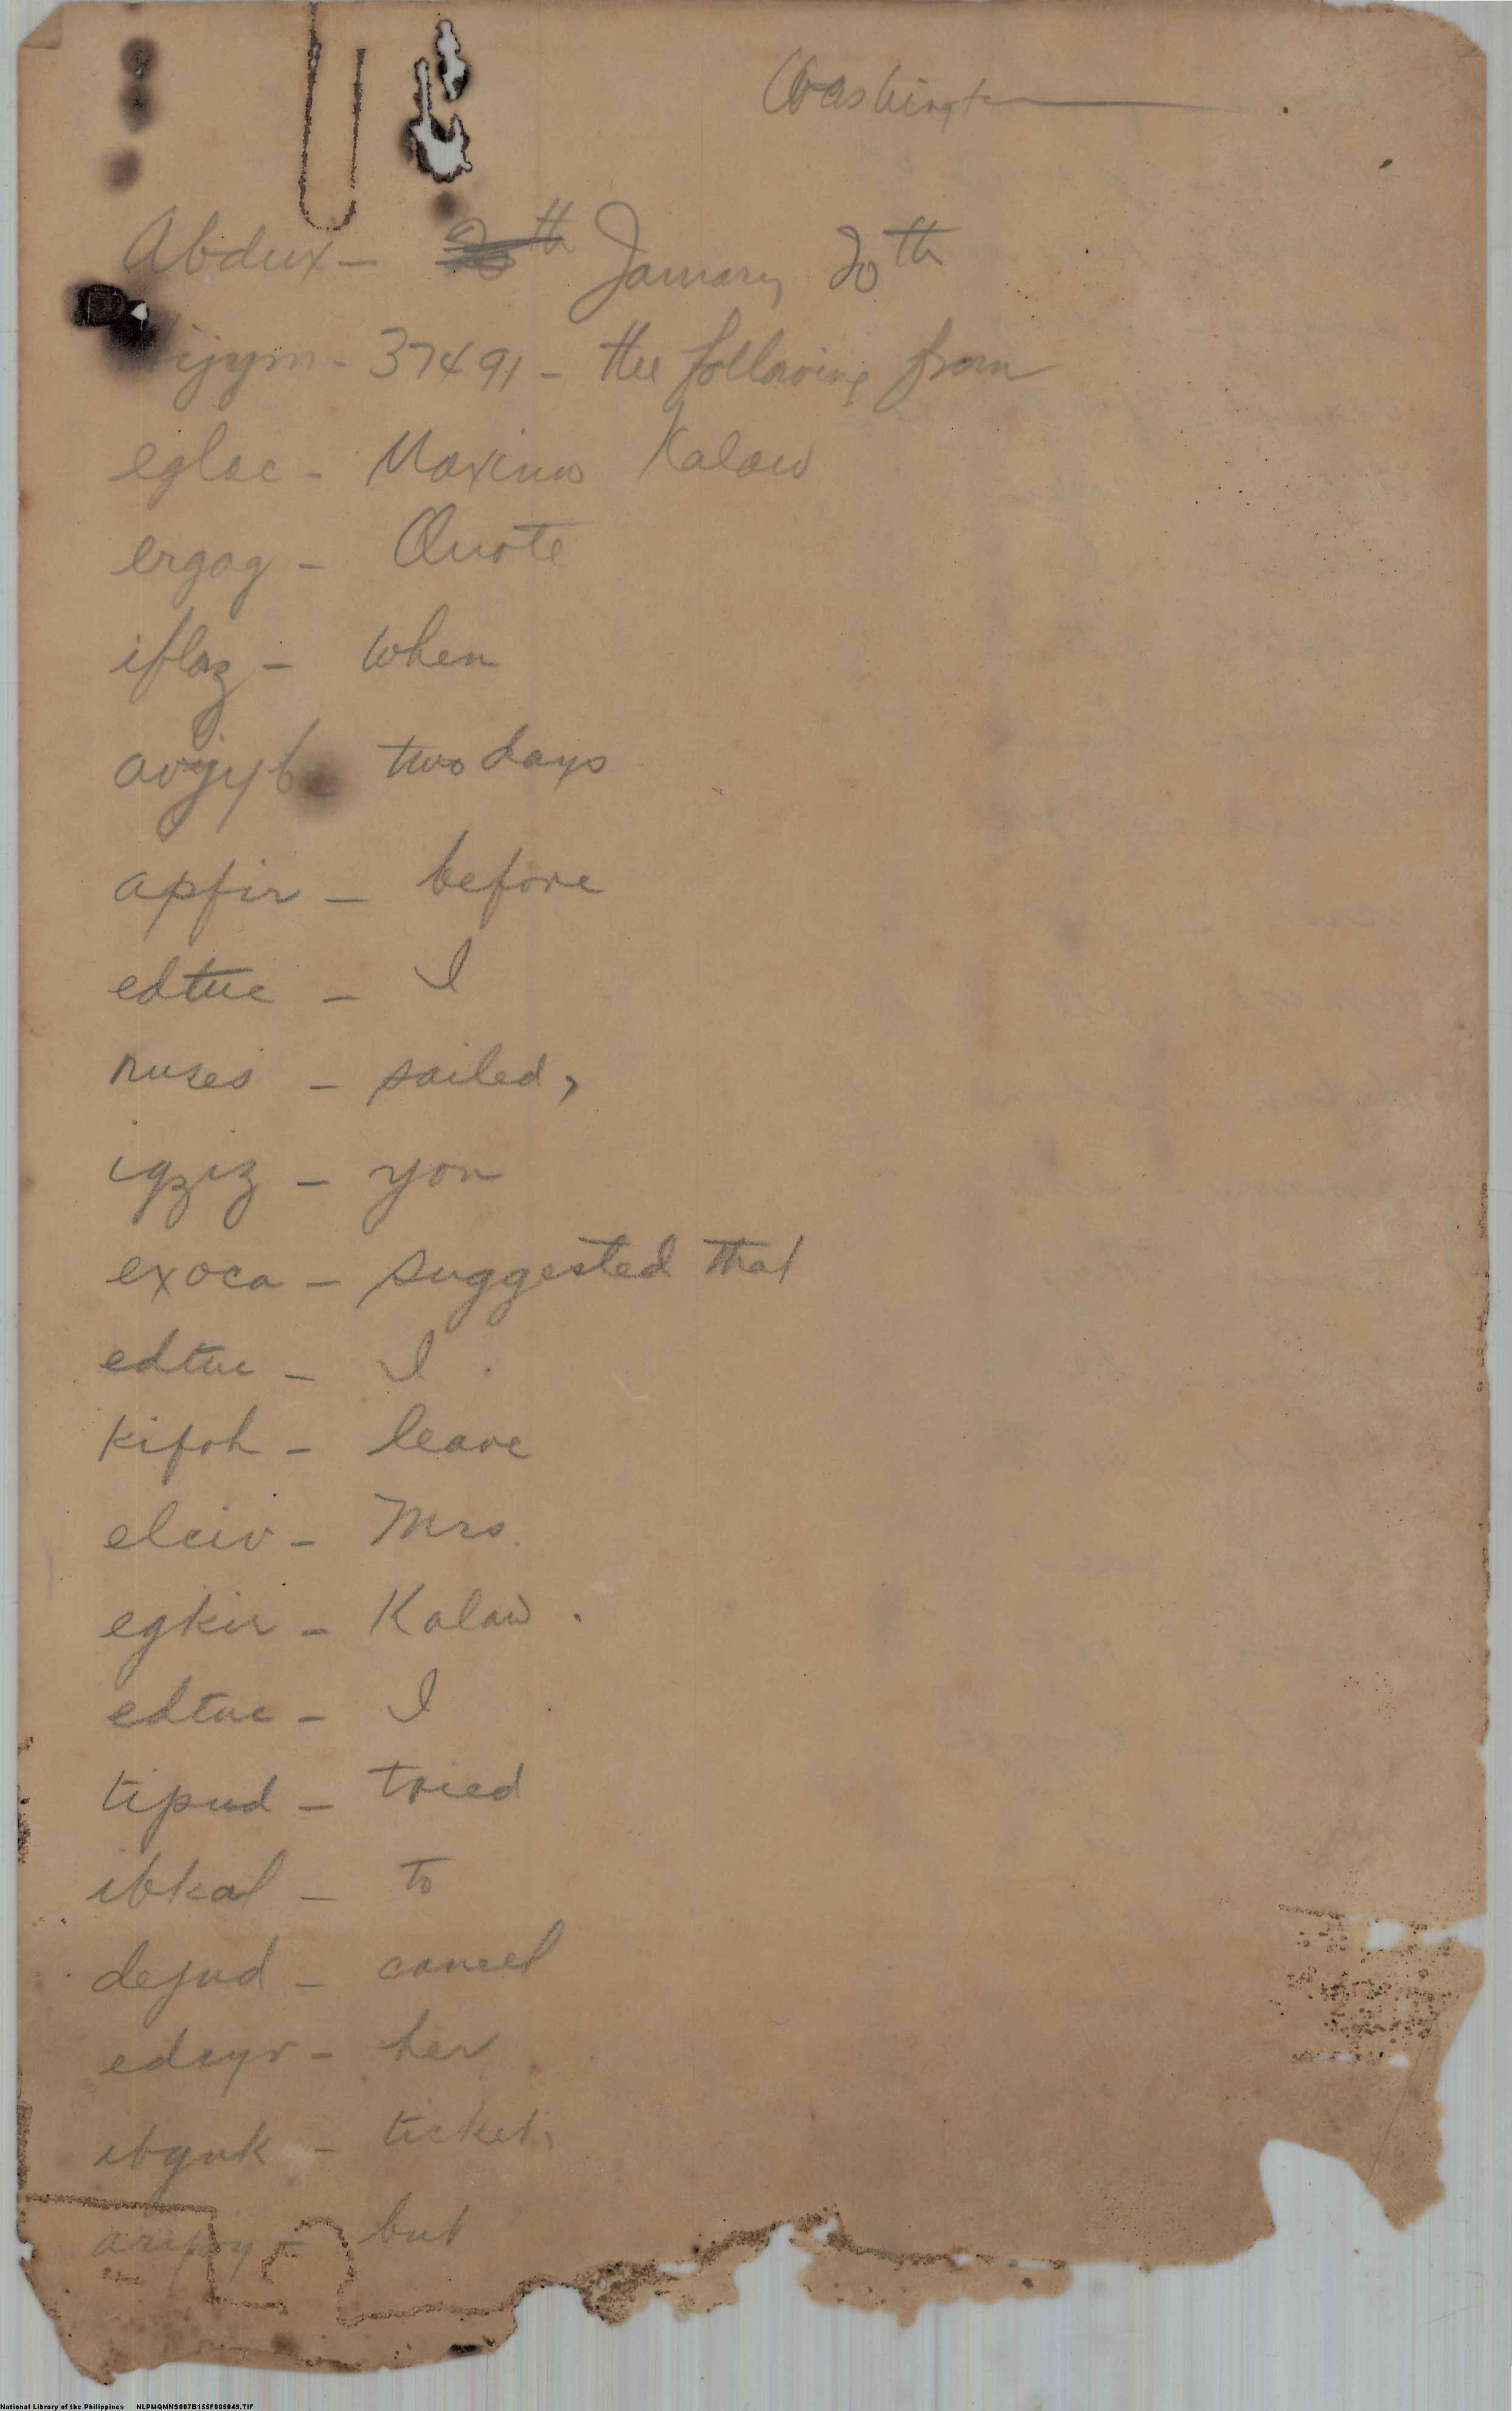 Washington
Abdux - January 20th
37491 - the following from
eglac - Maximo Kalaw
ergag - Quote
iflaz - when
avjyb - two days
apfir - before
edtuc - I
nuses - sailed,
igziz - you
exoca - suggested that
edtuc - I
kifoh - leave
elciv - Mrs.
egkir - Kalaw.
edtuc - I
tipud - tried
ibkal - to
dejud - cancel
edcyr - her
ibguk - ticket,
but
National Library of the Philippines NLPMQMNS007B155F005049.TIF